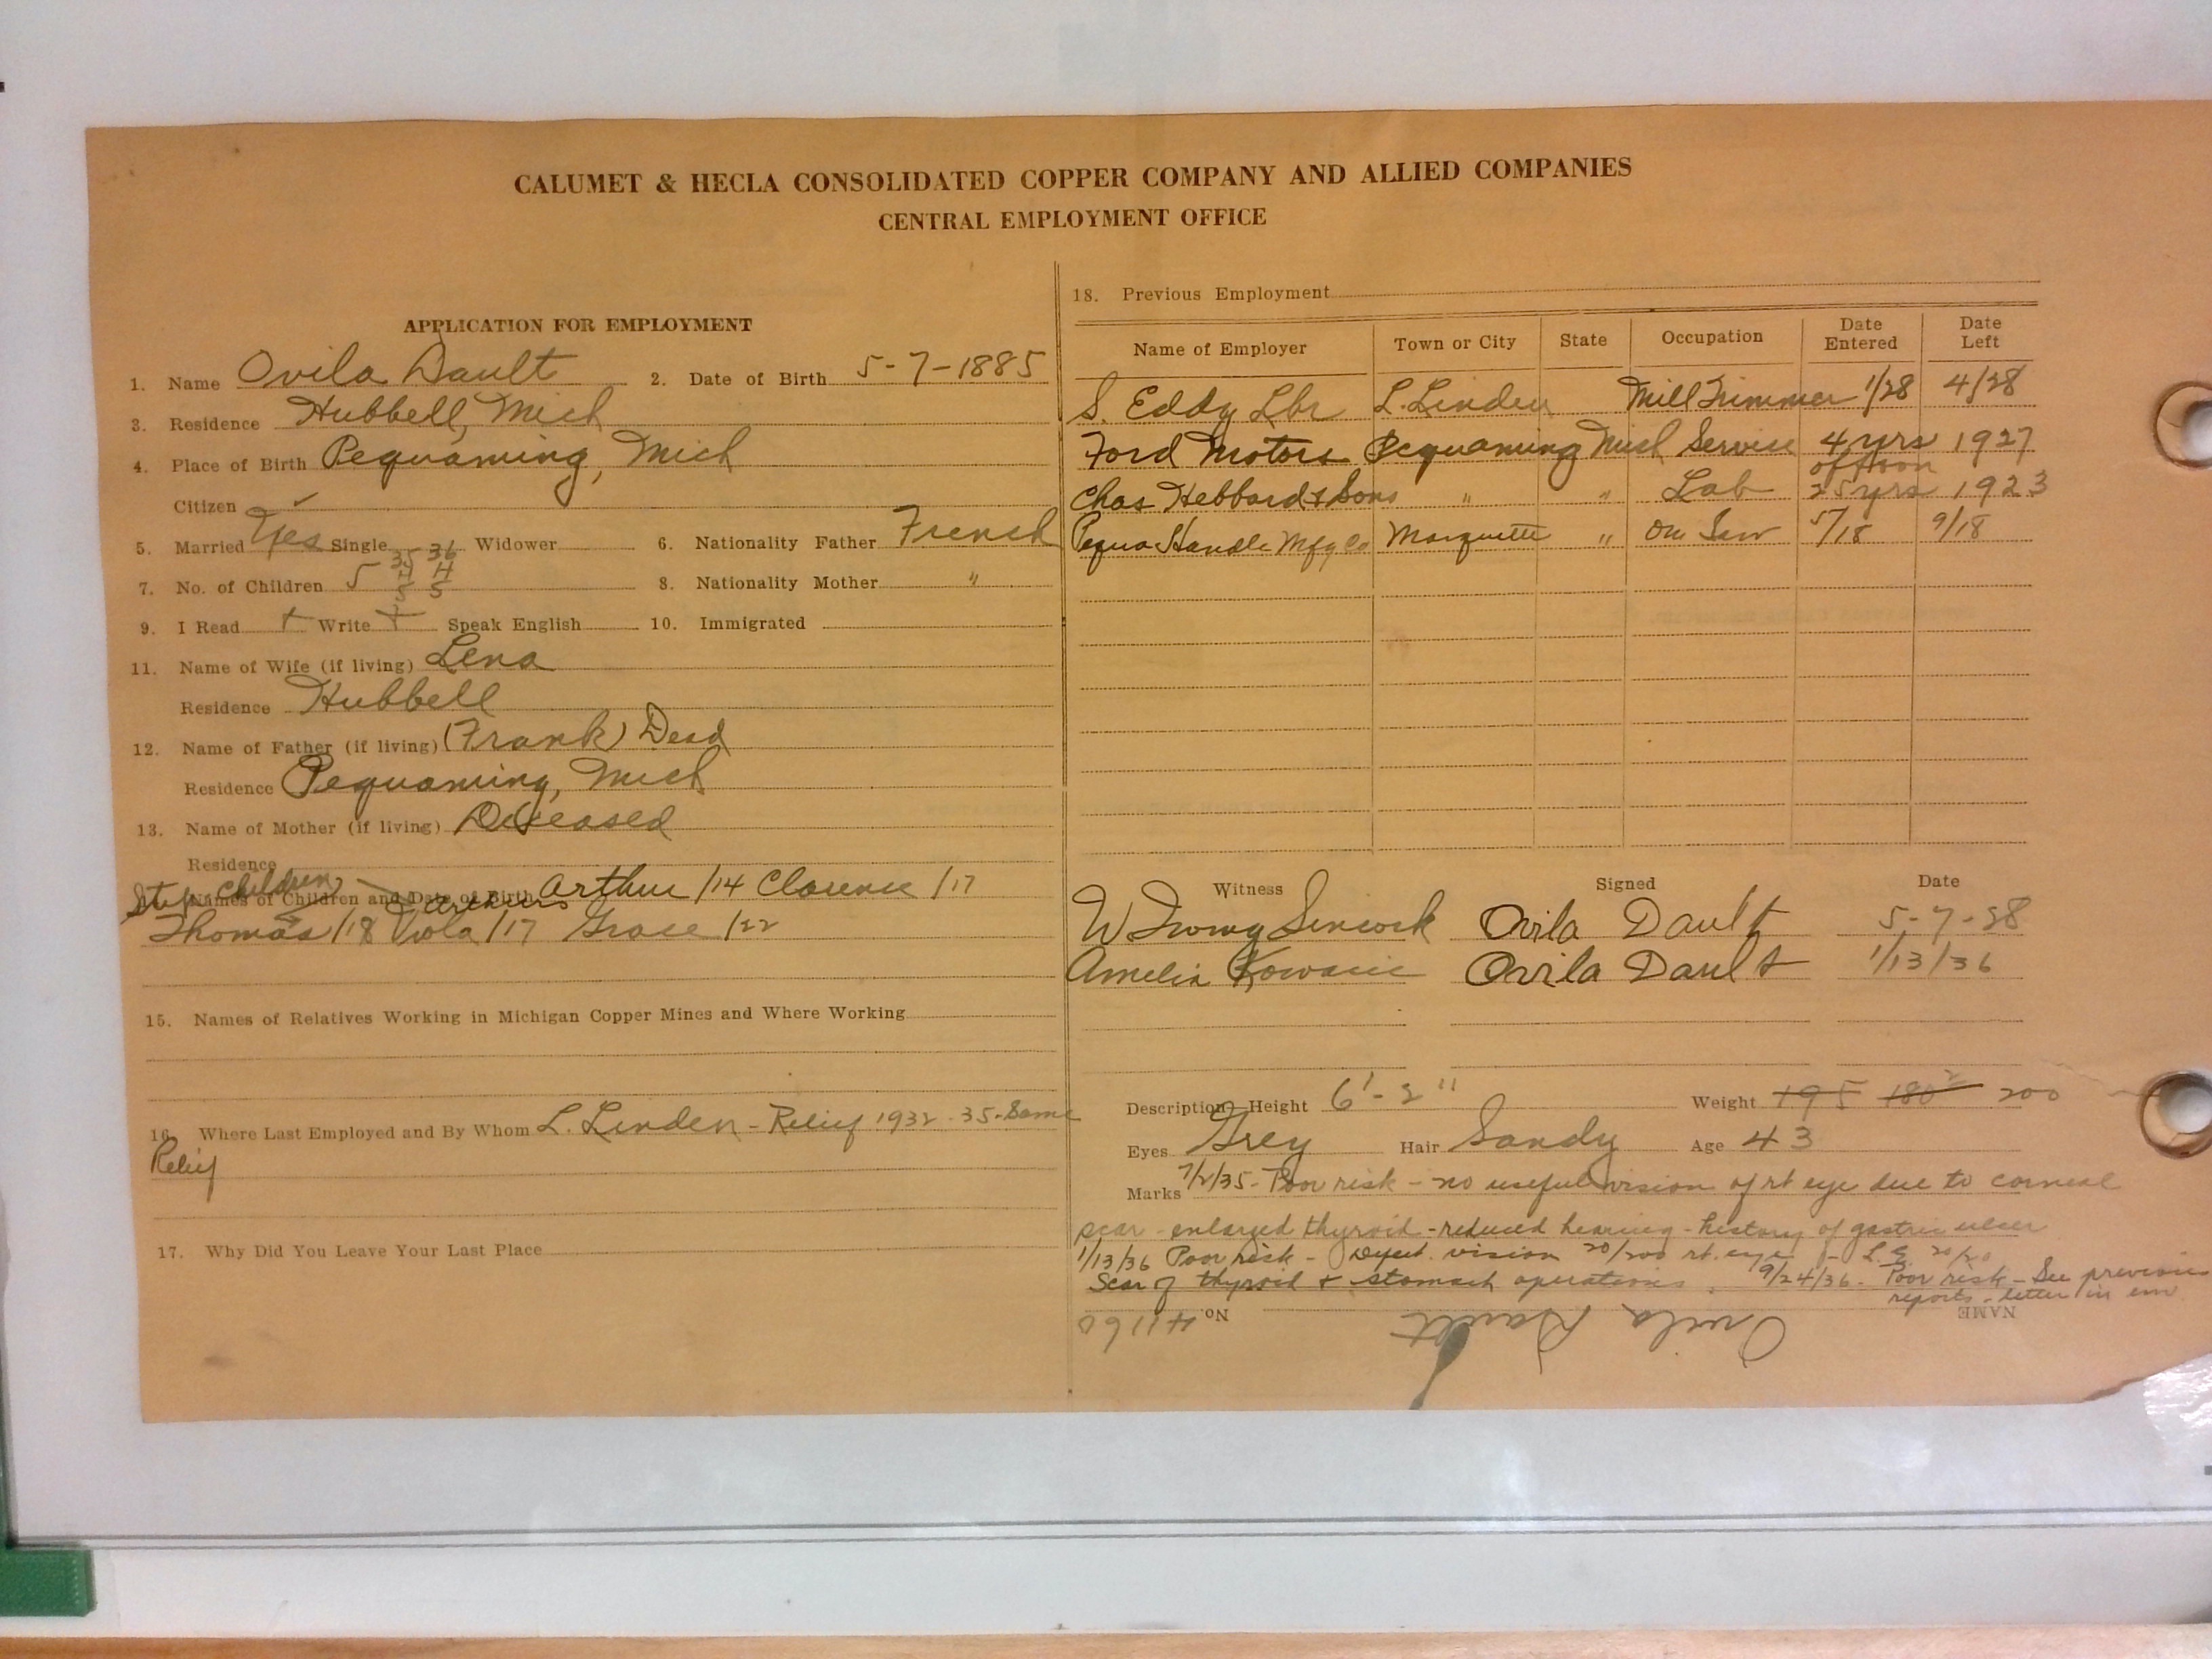 CALUMET & HECLA CONSOLIDATED COPPER COMPANY AND ALLIED COMPANIES
CENTRAL EMPLOYMENT OFFICE
APPLICATION FOR EMPLOYMENT
1. Name Ovila Dault 2. Date of Birth 5-7-1885
3. Residence Hubbell, Mich
4. Place of Birth Pequaming, Mich
Citizen ✓
5. Married Yes Single Widower 6. Nationality Father French
35 36
7. No. of Children 5 4 4 8. Nationality Mother "
5 5
9. I Read + Write + Speak English 10. Immigrated
11. Name of Wife (if living) Lena
Residence Hubbell
12. Name of Father (if living) (Frank) Dead
Residence Pequaming, Mich
13. Name of Mother (if living) Deceased
Residence
Step Children
Names of Children and Date of Birth Arthur /14 Clarence /17
Thomas /18 Viola /17 Grace /22
15. Names of Relatives Working in Michigan Copper Mines and Where Working
16. Where Last Employed and By Whom L. Linden - Relief 1932 - 35 - Same
Relief
17. Why Did You Leave Your Last Place
18. Previous Employment
Name of Employer Town or City State Occupation Date Entered Date Left
S. Eddy Lbr L. Linden Mill Trimmer 1/28 4/28
Ford Motors Pequaming Mich Service 4 yrs 1927
off & on
Chas Hebbard & Sons " " Lab 25 yrs 1923
Pequa Handle Mfg Co Marquette " On Saw 5/18 9/18
Witness Signed Date
W Ovila Dault 5-7-28
Amelia Ovila Dault 1/13/36
Description Height 6'-2" Weight 195 180 200
Eyes Grey Hair Sandy Age 43
Marks 7/2/35 - Poor risk - no useful vision of rt eye due to corneal
scar - enlarged thyroid - reduced hearing - history of gastric ulcer
1/13/36 Poor risk - Defect. vision 20/200 rt. eye - L.E. 20/20
Scar of thyroid & stomach operations. 9/24/36 - Poor risk - See previous
reports - letter in env
NAME Ovila Dault No. 41160